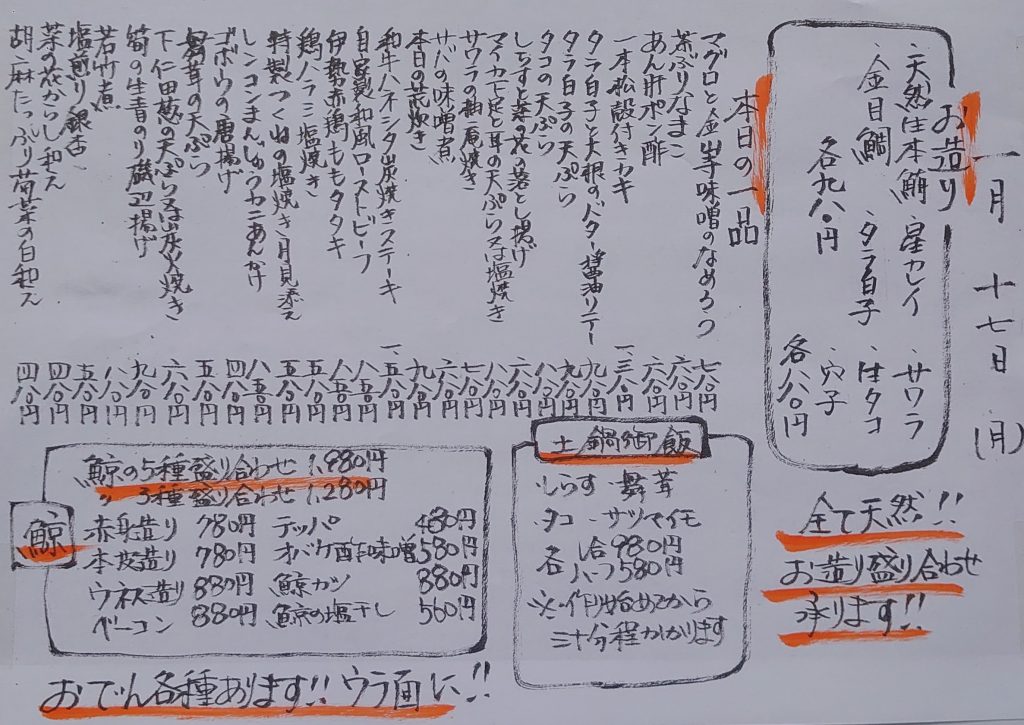 一月十七日(月)
お造り
・天然生本鮪
・星カレイ
・サワラ
・金目鯛
・タラ白子
・生タコ
・穴子
各九八〇円
各八八〇円
全て天然!!
お造り盛り合わせ
承ります!!
本日の一品
マグロと金山寺味噌のなめろう 七八〇円
茶ぶりなまこ 六八〇円
あん肝ポン酢 六八〇円
一本松殻付きカキ 一、三八〇円
タラ白子と大根のバター醤油ソテー 九八〇円
タラ白子の天ぷら 九八〇円
タコの天ぷら 八八〇円
しらすと菜の花の落とし揚げ 六八〇円
マイカ下足と耳の天ぷら又は塩焼き 六八〇円
サワラの柚庵焼き 七八〇円
サバの味噌煮 六八〇円
本日の荒炊き 九八〇円
和牛ハネシタ炭焼きステーキ 一、五八〇円
自家製和風ローストビーフ 八八〇円
伊勢赤鶏ももタタキ 八五〇円
鶏ハラミ塩焼き 五八〇円
特製つくねの塩焼き月見添え 五五〇円
レンコンまんじゅうカニあんかけ 八五〇円
ゴボウの唐揚げ 四八〇円
舞茸の天ぷら 五八〇円
下仁田葱の天ぷら又は炭火焼き 六八〇円
筍の生青のり磯辺揚げ 九八〇円
若竹煮 八八〇円
塩煎り銀杏 五八〇円
菜の花からし和え 四八〇円
胡麻たっぷり菊菜の白和え 四八〇円
土鍋御飯
・しらす ・舞茸
・タコ ・サツマイモ
各 一合980円
各 ハーフ580円
※・作り始めてから
三十分程かかります
鯨
鯨の5種盛り合わせ 1,980円
〃 3種盛り合わせ 1,280円
赤身造り 780円 テッパ 480円
本皮造り 780円 オバケ酢味噌 580円
ウネス造り 880円 鯨カツ 880円
ベーコン 880円 鯨の塩干し 560円
おでん各種あります!!ウラ面に!!